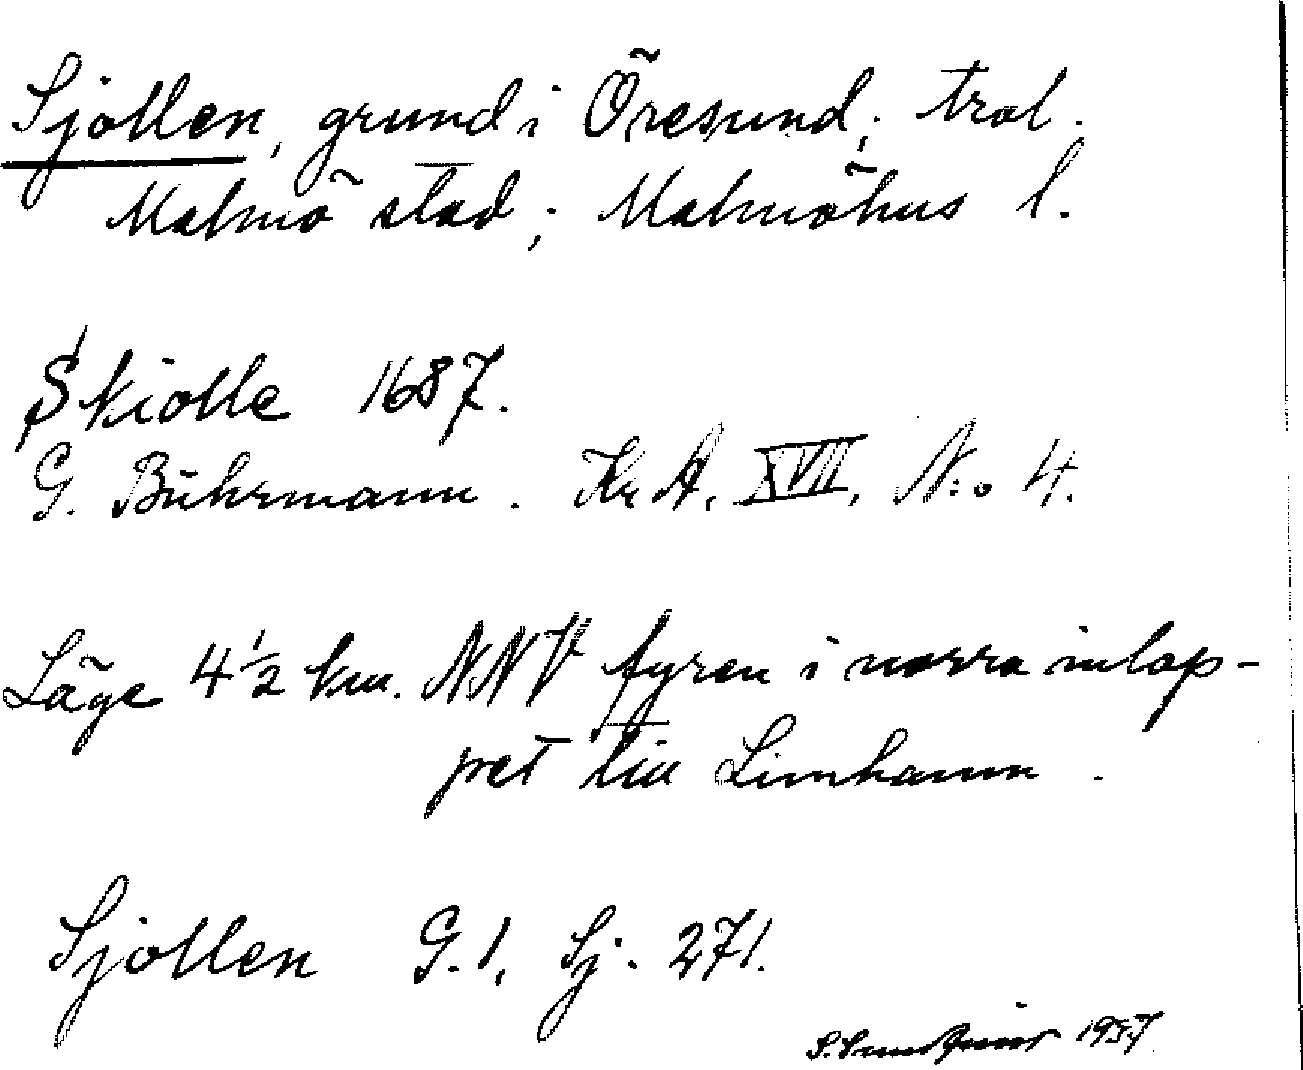 Sjollen, grund i Öresund; trol.
Malmö stad; Malmöhus l.
Skiolle 1687.
G. Bührmann. Kr A. XVII, N:o 4.
Läge 4 1/2 km. NNV fyren i norra inlop-
pet till Limhamn.
Sjollen G.1, Sj. 271.
1937